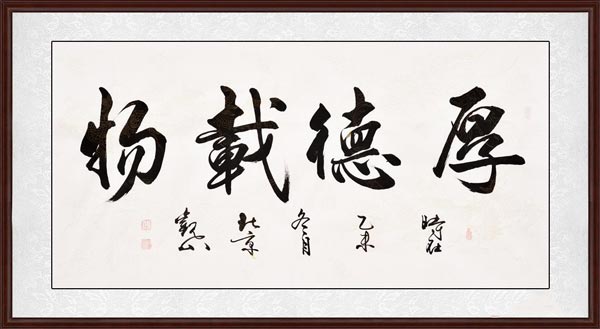 厚德載物
時在乙未冬月北京